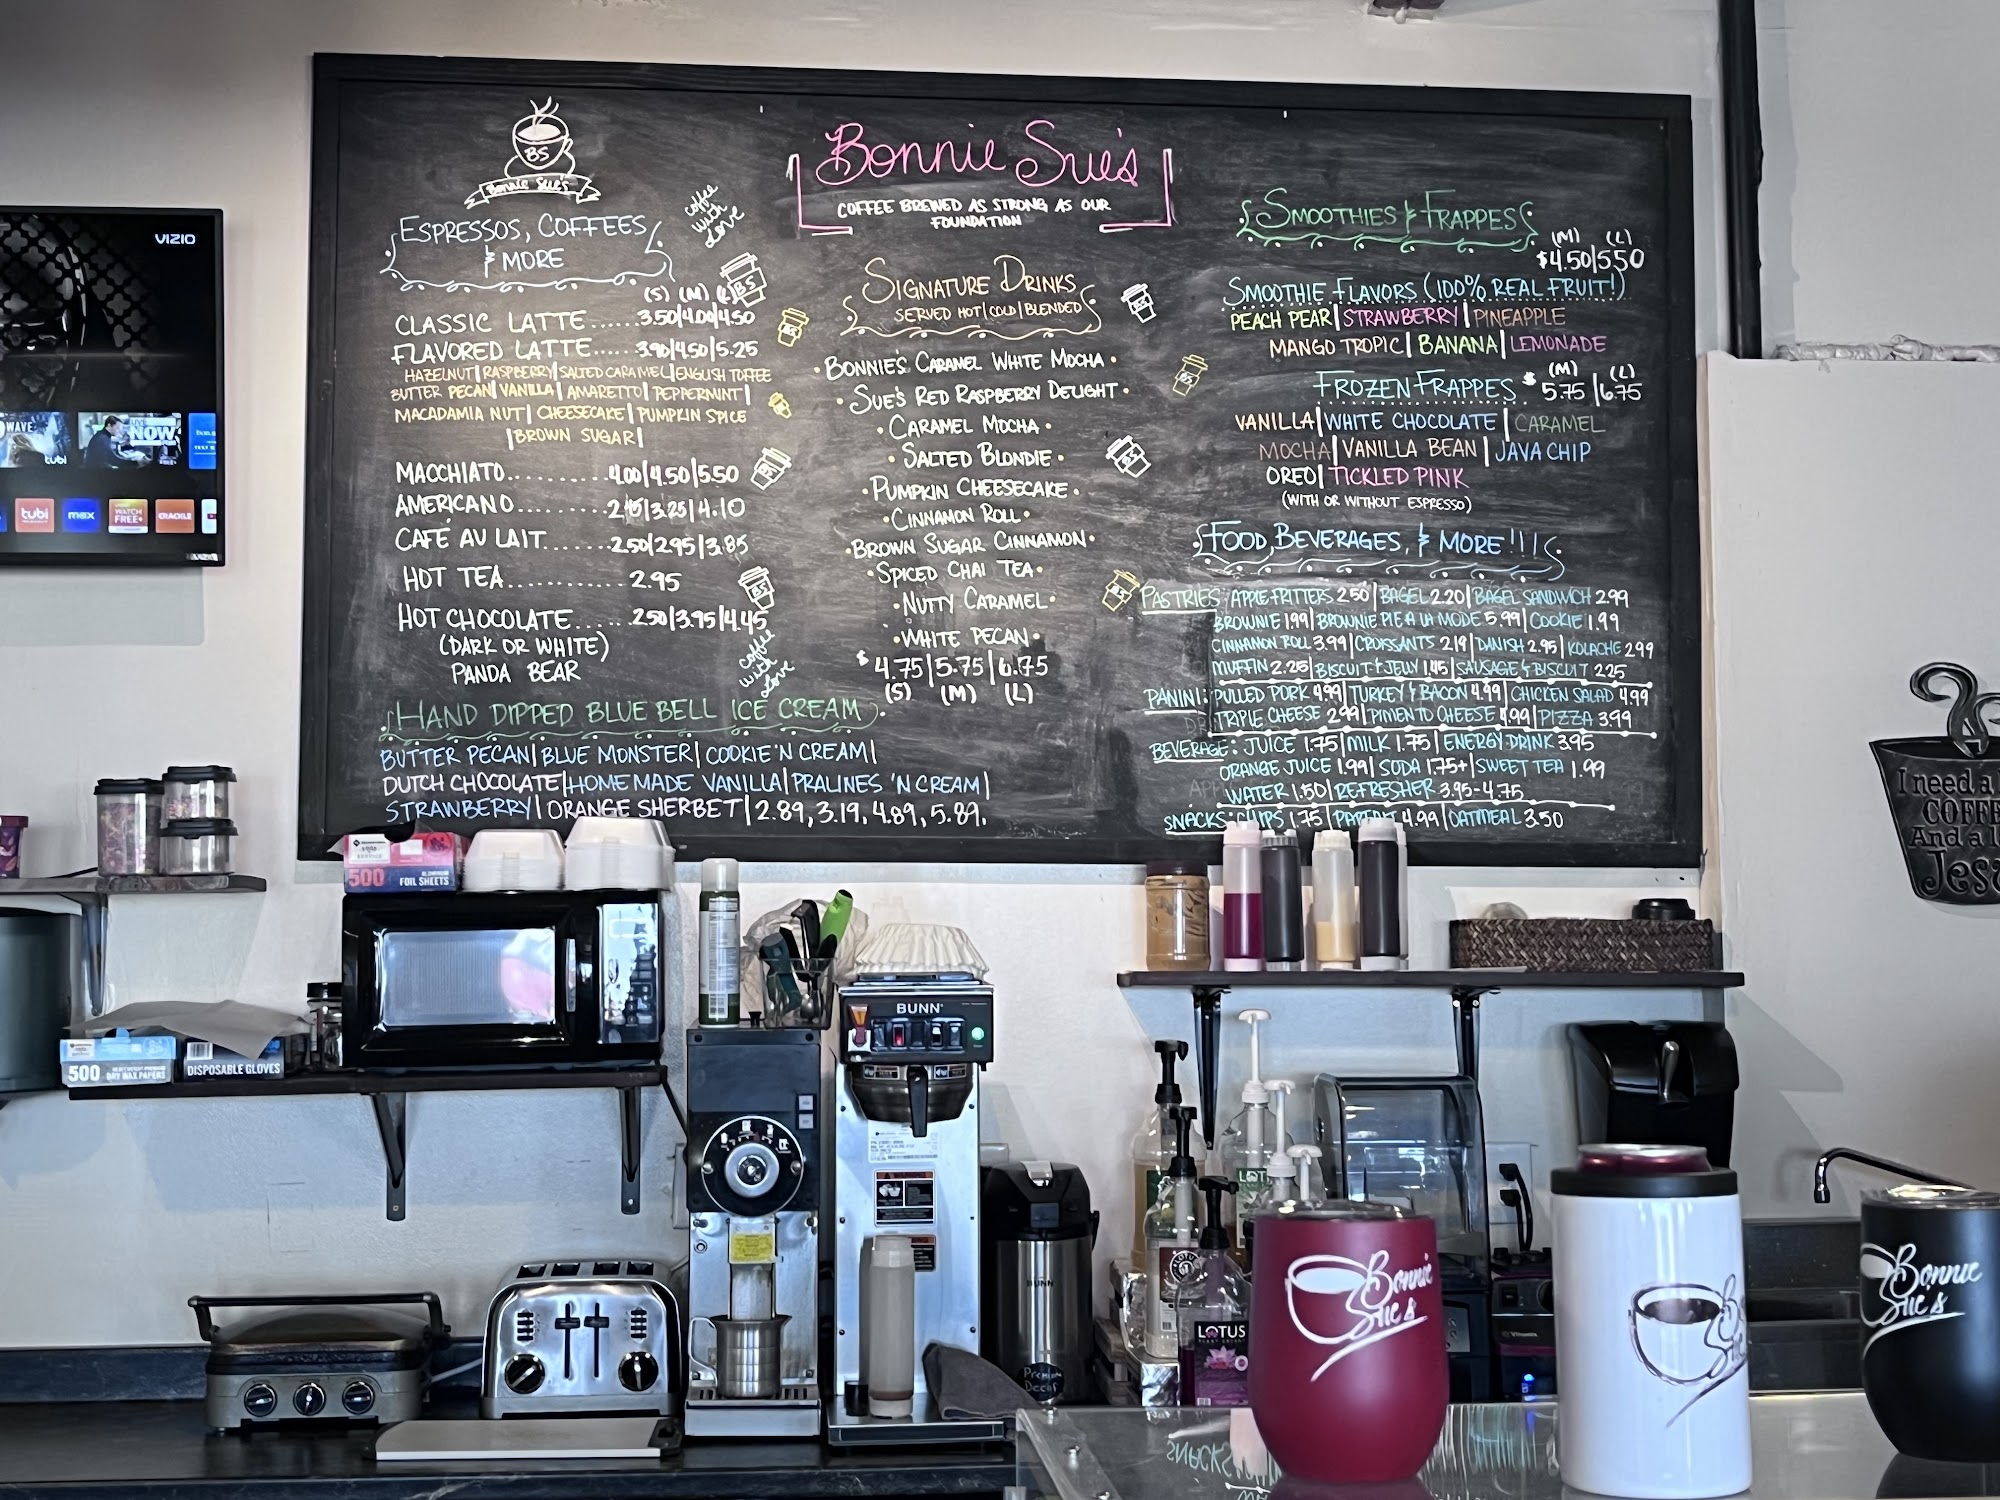 BS
Bonnie Sue's
ESPRESSOS, COFFEES
& MORE
coffee
with
Love
(S) (M)
BS
CLASSIC LATTE......3.50/4.00/4.50
FLAVORED LATTE.....3.90/4.50/5.25
HAZELNUT|RASPBERRY|SALTED CARAMEL|ENGLISH TOFFEE
BUTTER PECAN|VANILLA|AMARETTO|PEPPERMINT|
MACADAMIA NUT|CHEESECAKE|PUMPKIN SPICE
|BROWN SUGAR|
MACCHIATO..........4.00/4.50/5.50
AMERICANO......... /3.25/4.10
CAFÉ AU LAIT.......2.50/2.95/3.85
HOT TEA............2.95
HOT CHOCOLATE......2.50/3.95/4.45
(DARK OR WHITE)
PANDA BEAR
coffee
with
Love
HAND DIPPED BLUE BELL ICE CREAM
BUTTER PECAN|BLUE MONSTER|COOKIE 'N CREAM|
DUTCH CHOCOLATE|HOMEMADE VANILLA|PRALINES 'N CREAM|
STRAWBERRY|ORANGE SHERBET|2.89, 3.19, 4.89, 5.89.
Bonnie Sue's
COFFEE BREWED AS STRONG AS OUR
FOUNDATION
SIGNATURE DRINKS
SERVED HOT|COLD|BLENDED
•BONNIE'S CARAMEL WHITE MOCHA•
•SUE'S RED RASPBERRY DELIGHT•
•CARAMEL MOCHA•
•SALTED BLONDIE•
•PUMPKIN CHEESECAKE•
•CINNAMON ROLL•
•BROWN SUGAR CINNAMON•
•SPICED CHAI TEA•
•NUTTY CARAMEL•
•WHITE PECAN•
$4.75|5.75|6.75
(S) (M) (L)
BS
BS
BS
BS
BS
BS
BS
SMOOTHIES & FRAPPES
(M) (L)
$4.50/5.50
SMOOTHIE FLAVORS (100% REAL FRUIT!)
PEACH PEAR|STRAWBERRY|PINEAPPLE
MANGO TROPIC|BANANA|LEMONADE
(M) (L)
FROZEN FRAPPES $5.75/6.75
VANILLA|WHITE CHOCOLATE|CARAMEL
MOCHA|VANILLA BEAN|JAVA CHIP
OREO|TICKLED PINK
(WITH OR WITHOUT ESPRESSO)
FOOD, BEVERAGES, & MORE!!!
PASTRIES: APPLE FRITTERS 2.50|BAGEL 2.20|BAGEL SANDWICH 2.99
BROWNIE 1.99|BROWNIE PIE A LA MODE 5.99|COOKIE 1.99
CINNAMON ROLL 3.99|CROISSANTS 2.19|DANISH 2.95|KOLACHE 2.99
MUFFIN 2.25|BISCUIT & JELLY 1.45|SAUSAGE & BISCUIT 2.25
PANINI: PULLED PORK 4.99|TURKEY & BACON 4.99|CHICKEN SALAD 4.99
TRIPLE CHEESE 2.99|PIMENTO CHEESE 4.99|PIZZA 3.99
BEVERAGE: JUICE 1.75|MILK 1.75|ENERGY DRINK 3.95
ORANGE JUICE 1.99|SODA 1.75+|SWEET TEA 1.99
WATER 1.50|REFRESHER 3.95-4.75
SNACKS: CHIPS 1.75|PARFAIT 4.99|OATMEAL 3.50
VIZIO
WAVE
tubi
NOW
tubi
max
WATCH
FREE+
CRACKLE
VIZIO
I need a
COFFEE
And a
Jesus
500
FOIL SHEETS
500
DRY WAX PAPERS
DISPOSABLE GLOVES
BUNN
BUNN
Premium
Decaf
LOTUS
Bonnie
Sue's
Bonnie
Sue's